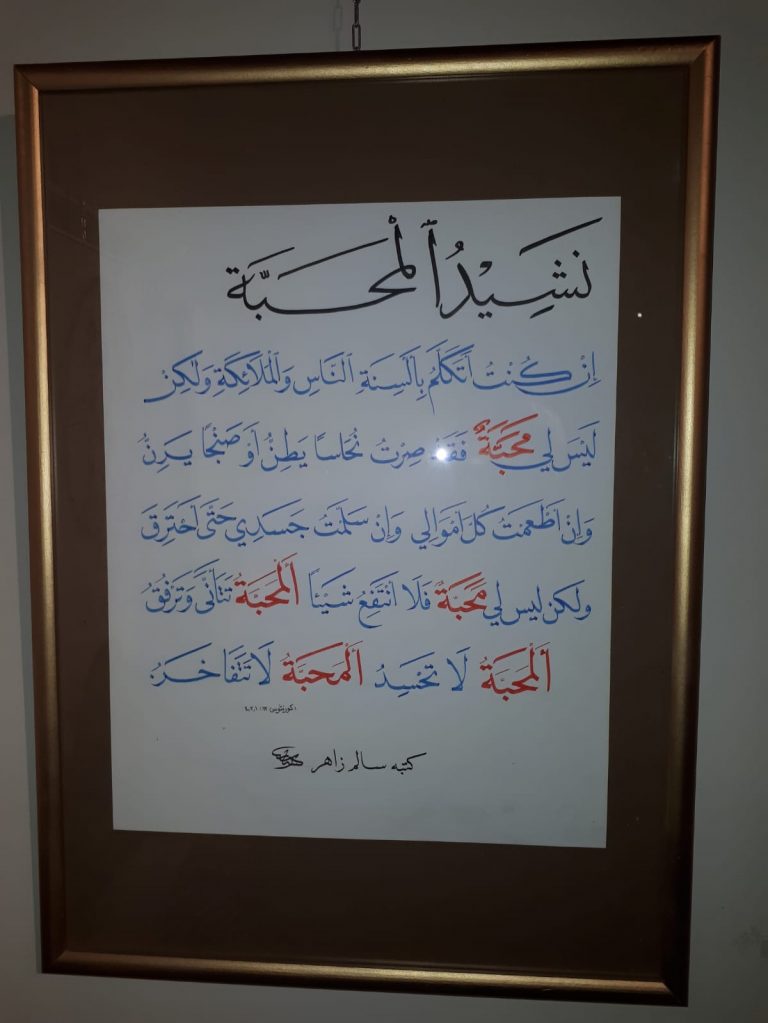 نَشِيْدُ ٱلْمَحَبَّة
إِنْ كُنْتُ أَتَكَلَّمُ بِأَلْسِنَةِ ٱلنَّاسِ وَالْمَلَائِكَةِ وَلٰكِنْ
لَيْسَ لِي مَحَبَّةٌ فَقَدْ صِرْتُ نُحَاسًا يَطِنُّ أَوْ صَنْجًا يَرِنُّ
وَإِنْ أَطْعَمْتُ كُلَّ أَمْوَالِي وَإِنْ سَلَّمْتُ جَسَدِي حَتَّى أَحْتَرِقَ
ولكن ليس لي مَحَبَّةٌ فَلَا أَنْتَفِعُ شَيْئًا أَلْمَحَبَّةُ تَتَأَنَّى وَتَرْفُقُ
أَلْمَحَبَّةُ لَا تَحْسِدُ أَلْمَحَبَّةُ لَا تَتَفَاخَرُ
كتبه سالم زاهر